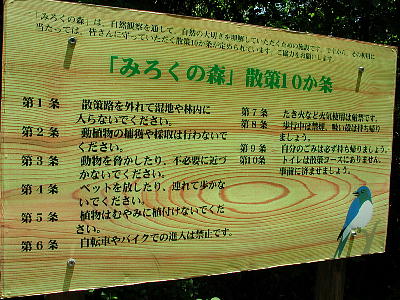 「みろくの森」は、自然観察を通して、自然の大切さを理解していただくための施設です。ですから、その利用に
当たっては、皆さんに守っていただく散策10か条が定められています。ご協力をお願いします。
「みろくの森」散策10か条
第1条 散策路を外れて湿地や林内に
入らないでください。
第2条 動植物の捕獲や採取は行わないで
ください。
第3条 動物を脅かしたり、不必要に近づ
かないでください。
第4条 ペットを放したり、連れて歩かな
いでください。
第5条 植物はむやみに植付けないでくだ
さい。
第6条 自転車やバイクでの進入は禁止です。
第7条 たき火など火気使用は厳禁です。
第8条 歩行中は禁煙、吸い殻は持ち帰り
ましょう。
第9条 自分のごみは必ず持ち帰りましょう。
第10条 トイレは散策コースにありません、
事前に済ませましょう。